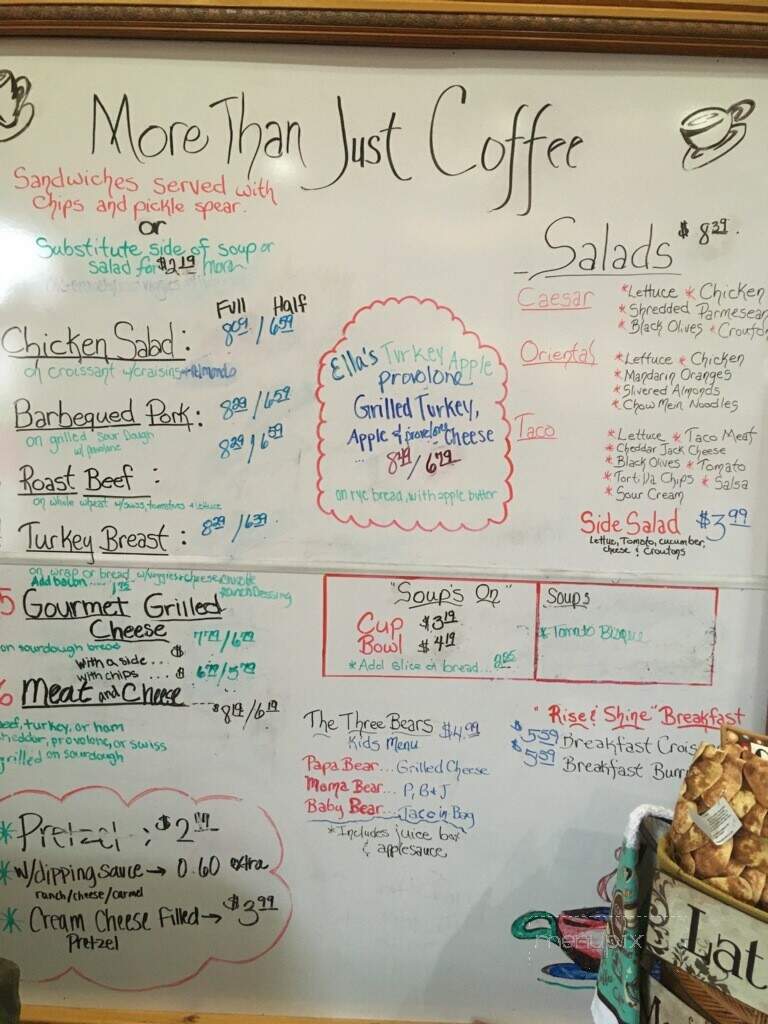 More Than Just Coffee
Sandwiches served with
chips and pickle spear.
or
Substitute side of soup or
salad for $2.19 more
Full Half
Chicken Salad: 8.09 / 6.59
on croissant w/craisins + Almonds
Barbequed Pork: 8.29 / 6.59
on grilled sour dough
w/ provolone
Roast Beef : 8.29 / 6.59
on whole wheat w/swiss, tomatoes & lettuce
Turkey Breast : 8.29 / 6.39
on wrap or bread w/veggies+cheese,
Ranch Dressing
Add bacon ....
Gourmet Grilled
Cheese
on sourdough bread
with a side ... $
with chips ... $
Meat and Cheese ... $8.19 / 6.19
beef, turkey, or ham
cheddar, provolone, or swiss
grilled on sourdough
*Pretzel : $2.19
*w/dipping sauce → 0.60 extra
ranch/cheese/carmel
*Cream Cheese Filled → $3.99
Pretzel
Ella's Turkey Apple
provolone
Grilled Turkey,
Apple & provolone cheese
8.49 / 6.79
on rye bread, with apple butter
Salads $8.39
Caesar *Lettuce *Chicken
*Shredded Parmesean
*Black Olives *Crouton
Oriental *Lettuce *Chicken
*Mandarin Oranges
*Slivered Almonds
*Chow Mein Noodles
Taco *Lettuce *Taco Meat
*Cheddar Jack Cheese
*Black Olives *Tomato
*Tortilla Chips *Salsa
*Sour Cream
Side Salad $3.99
Lettuce, Tomato, cucumber,
cheese & Croutons
"Soup's On"
Cup $3.19
Bowl $4.19
*Add slice of bread...
Soups
*Tomato Bisque
The Three Bears $4.99
Kids Menu
Papa Bear... Grilled Cheese
Moma Bear... P, B + J
Baby Bear... Taco in Bag
*Includes juice box
& applesauce
"Rise & Shine" Breakfast
$5.59 Breakfast Crois
$5.59 Breakfast Burr
Lat
menupix